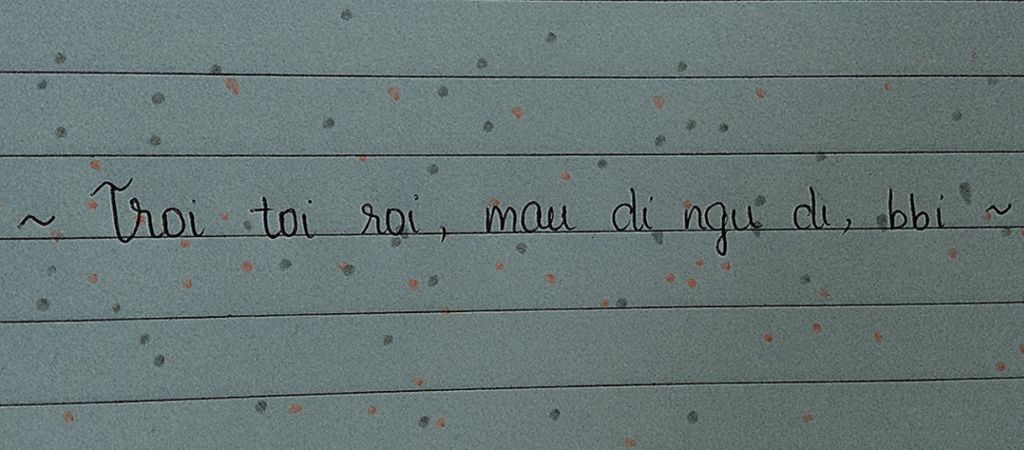 ~ Troi toi roi, mau di ngu di, bbi ~